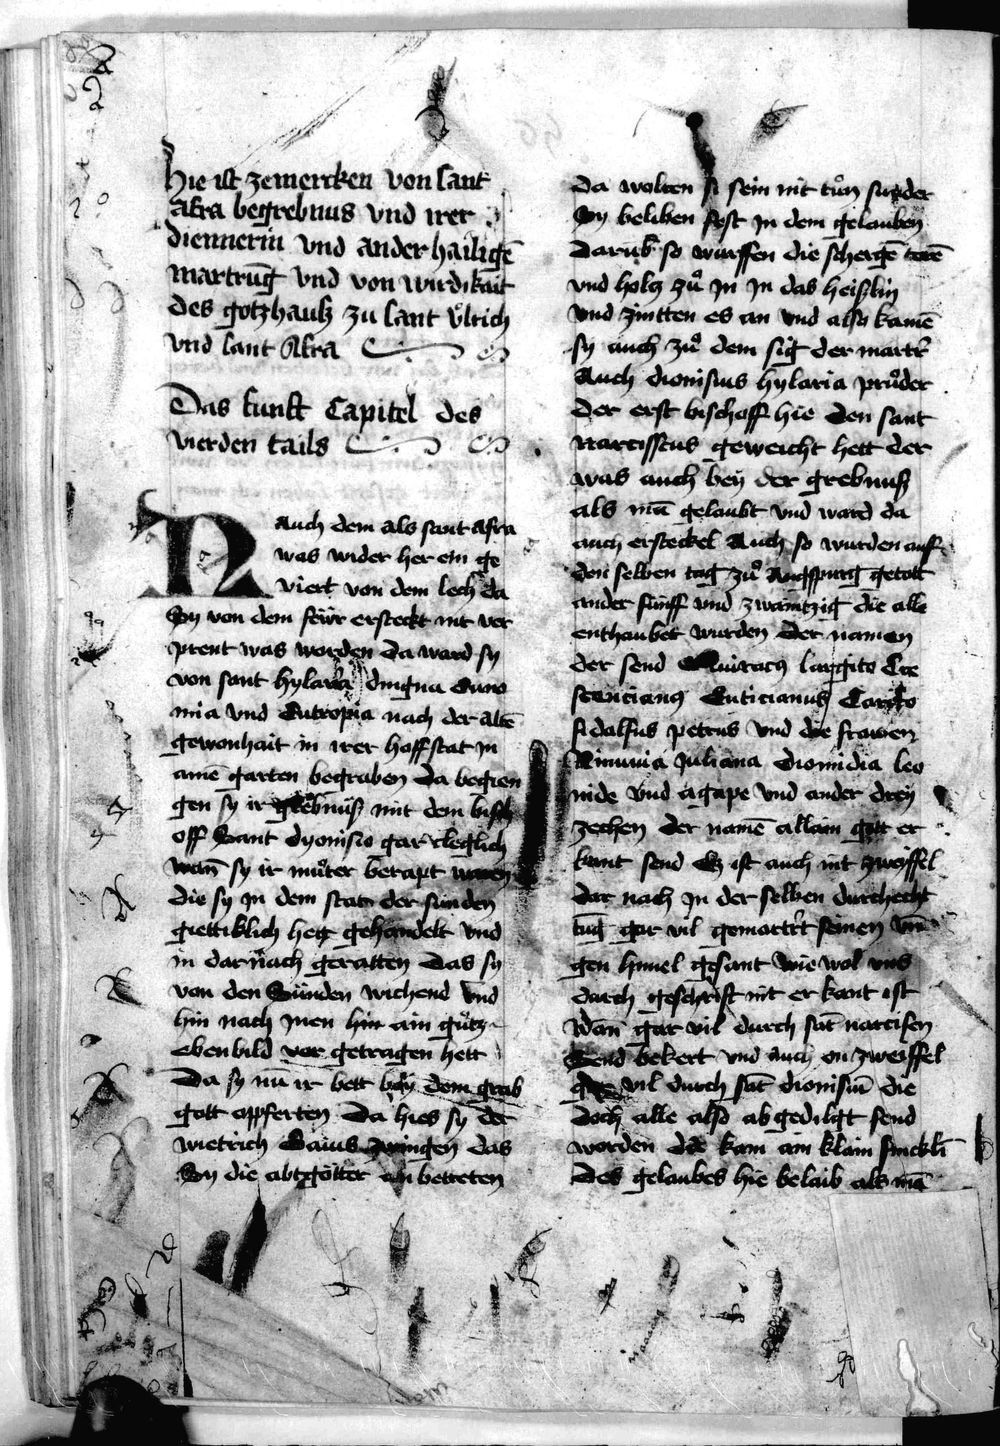 Hie ist zemercken von sant
Afra begrebnus vnd irer
diennerin vnd ander hailigē
martrūg vnd von wirdikait
des gotzhauß zu sant vͦlrich
vnd sant Afra
Das funft Capitel des
vierden tails
Nauch dem als sant Afra
was wider her ein ge
viert von dem lech da
Sy von dem feẅr ersteckt nit ver
prent was worden da ward sy
von sant hylaria digna Euno
mia vnd Eutropia nach der altē
gewonhait in irer hoffstat in
ainē garten begraben Da begien
gen sy ir grebnuß mit dem bisch
off Sant dyonisio gar cleglich
wan̄ sy ir muͦter berapt waren
die sy in dem stat der sünden
giettiklich hett gehandelt vnd
in dar nach geratten Das sy
von den Sünden wichend vnd
hin nach inen hin ain gütz
ebenbild vor getragen hett
Da sy nū ir bett bey dem grab
gott opferten Da hies sy der
wietrich Gaius zwingen das
Sy die abtgötter an betteten
Da wolten si sein nit tuͦn sunder
Sy beliben fest in dem gelauben
Darūb so wurffen die schergē
vnd holtz zuͦ in in das heißlin
vnd zintten es an vnd also kamē
sy auch zuͦ dem sig der martr̄
Auch dionisius hylaria pruͦder
der erst bischoff hie den sant
Narcissus geweicht hett der
was auch bey der grebnuß
als mā gelaubt vnd ward da
auch ersteckt Auch so wurden auf
den selben tag zuͦ Augspurg getott
ander fünff vnd zwaintzig die alle
enthaubet wurden Der namen
der send Quiriacꝰ largito Cre
scencianꝰ Euticianus Carito
fidalfus petrus vnd die frawen
Nimmia Juliana Diomidia leo
nide vnd agape vnd ander drey
zechen der namē allain gott er
kant send Eß ist auch nit zweyffel
dar nach in der selben durchecht
tūg gar vil gemartr̄t seinen
gen himel gesant wie wol vns
durch geschrift nit er kant ist
Wan̄ gar vil durch sāt narcisen
Send bekert vnd auch on zweiffel
gar vil durch sāt dionisiū die
doch alle also abgedilgt send
worden das kam ain klain
Des gelaubes hie belaib als mā